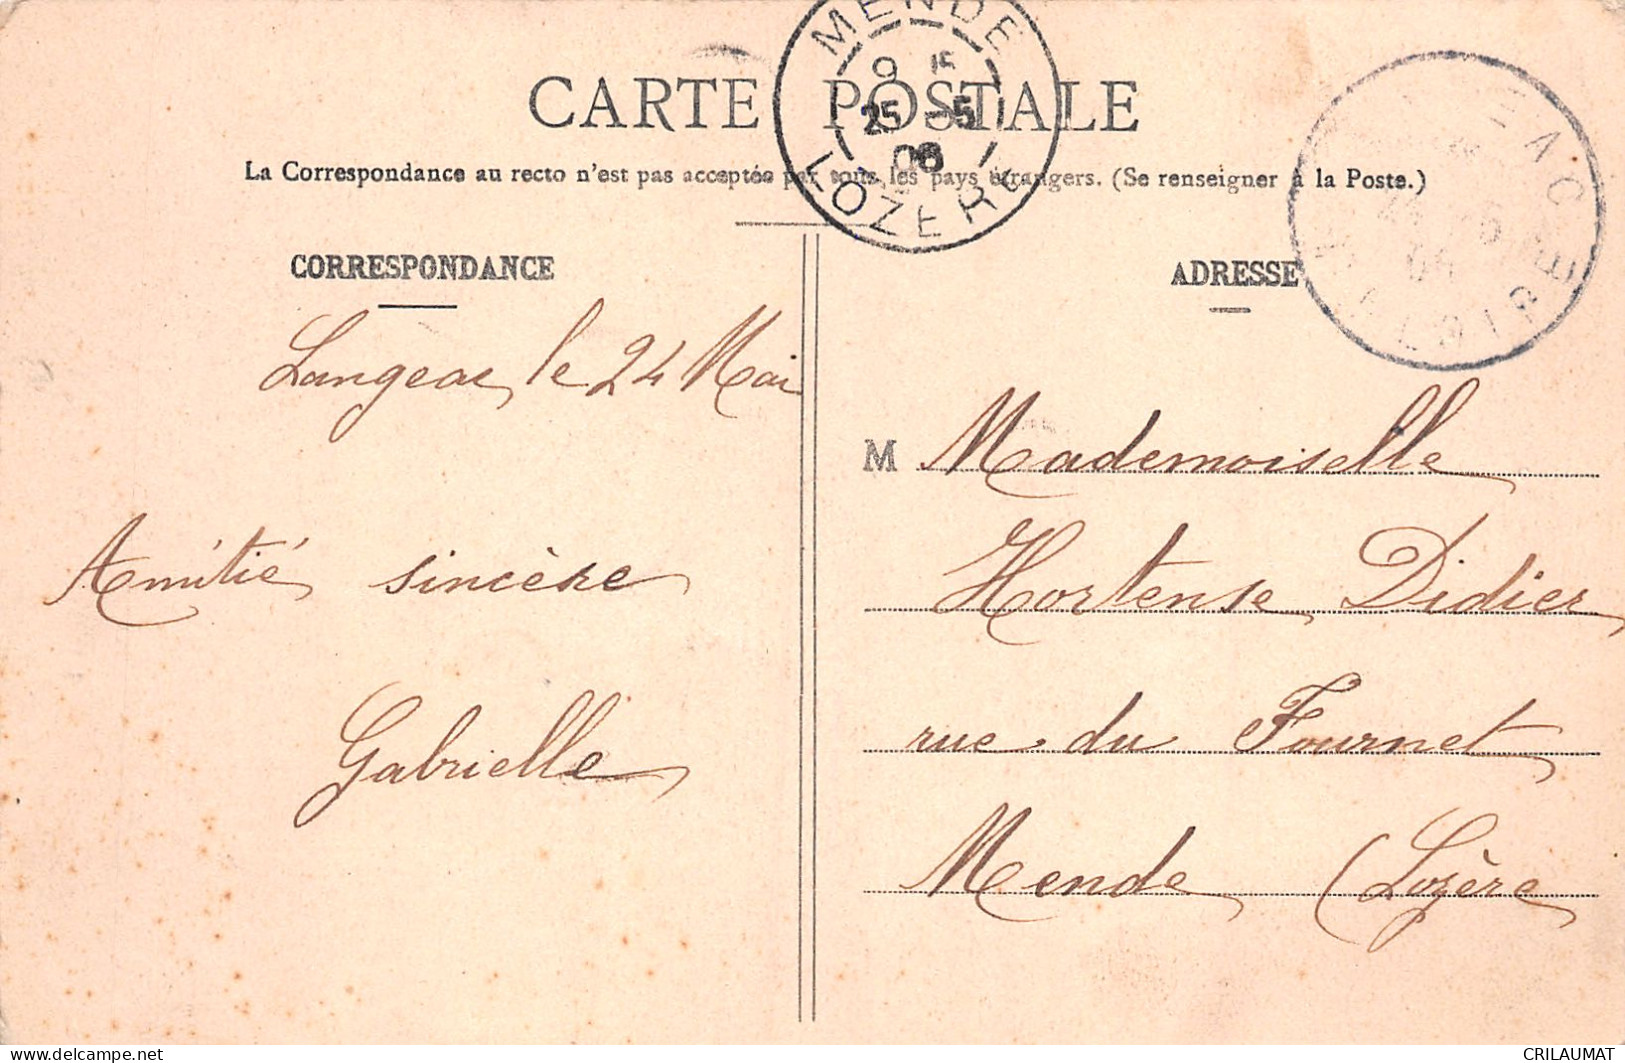 CARTE POSTALE
La Correspondance au recto n'est pas acceptée par tous les pays étrangers. (Se renseigner à la Poste.)
MENDE
9 15
25 -5
06
LOZERE
CORRESPONDANCE
ADRESSE
Langeac, le 24 Mai
Amitié sincère
Gabrielle
M Mademoiselle
Hortense Didier
rue du Fournet
Mende (Lozère
EAC
LOIRE
Delcampe.net
CRILAUMAT